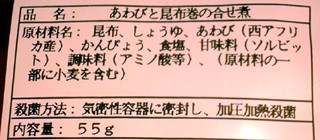 品 名： あわびと昆布巻の合せ煮
原材料名：昆布、しょうゆ、あわび（西アフリ
カ産）、かんぴょう、食塩、甘味料（ソルビッ
ト）、調味料（アミノ酸等）、（原材料の一
部に小麦を含む）
殺菌方法：気密性容器に密封し、加圧加熱殺菌
内容量：５５ｇ